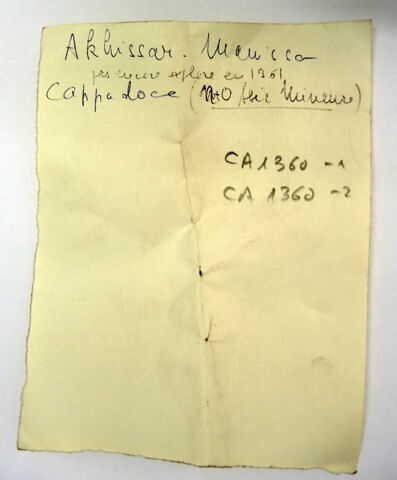 Akhissar. Manissa
pas encore exploré en 1961
Cappadoce (N-O Asie Mineure)
CA 1360 - 1
CA 1360 - 2